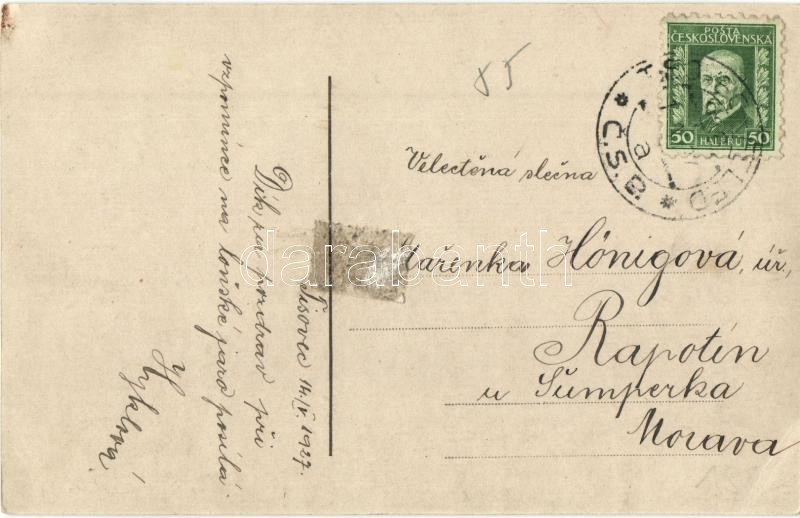 Tisovec 14./V. 1927.
Dík za pozdrav při
vzpomínce na loňské jaro posílá
85
Velectěná slečna
Mařenka Hönigová, úř,
Rapotín
u Šumperka
Morava
POŠTA
ČESKOSLOVENSKÁ
50 HALÉŘŮ 50
Č.S.
a
darabanth